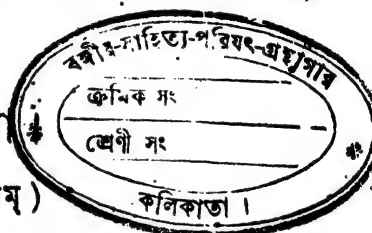 বঙ্গীয়-সাহিত্য-পরিষৎ-গ্রন্থাগার
ক্রমিক সং
শ্রেণী সং
কলিকাতা ।
ম্ )